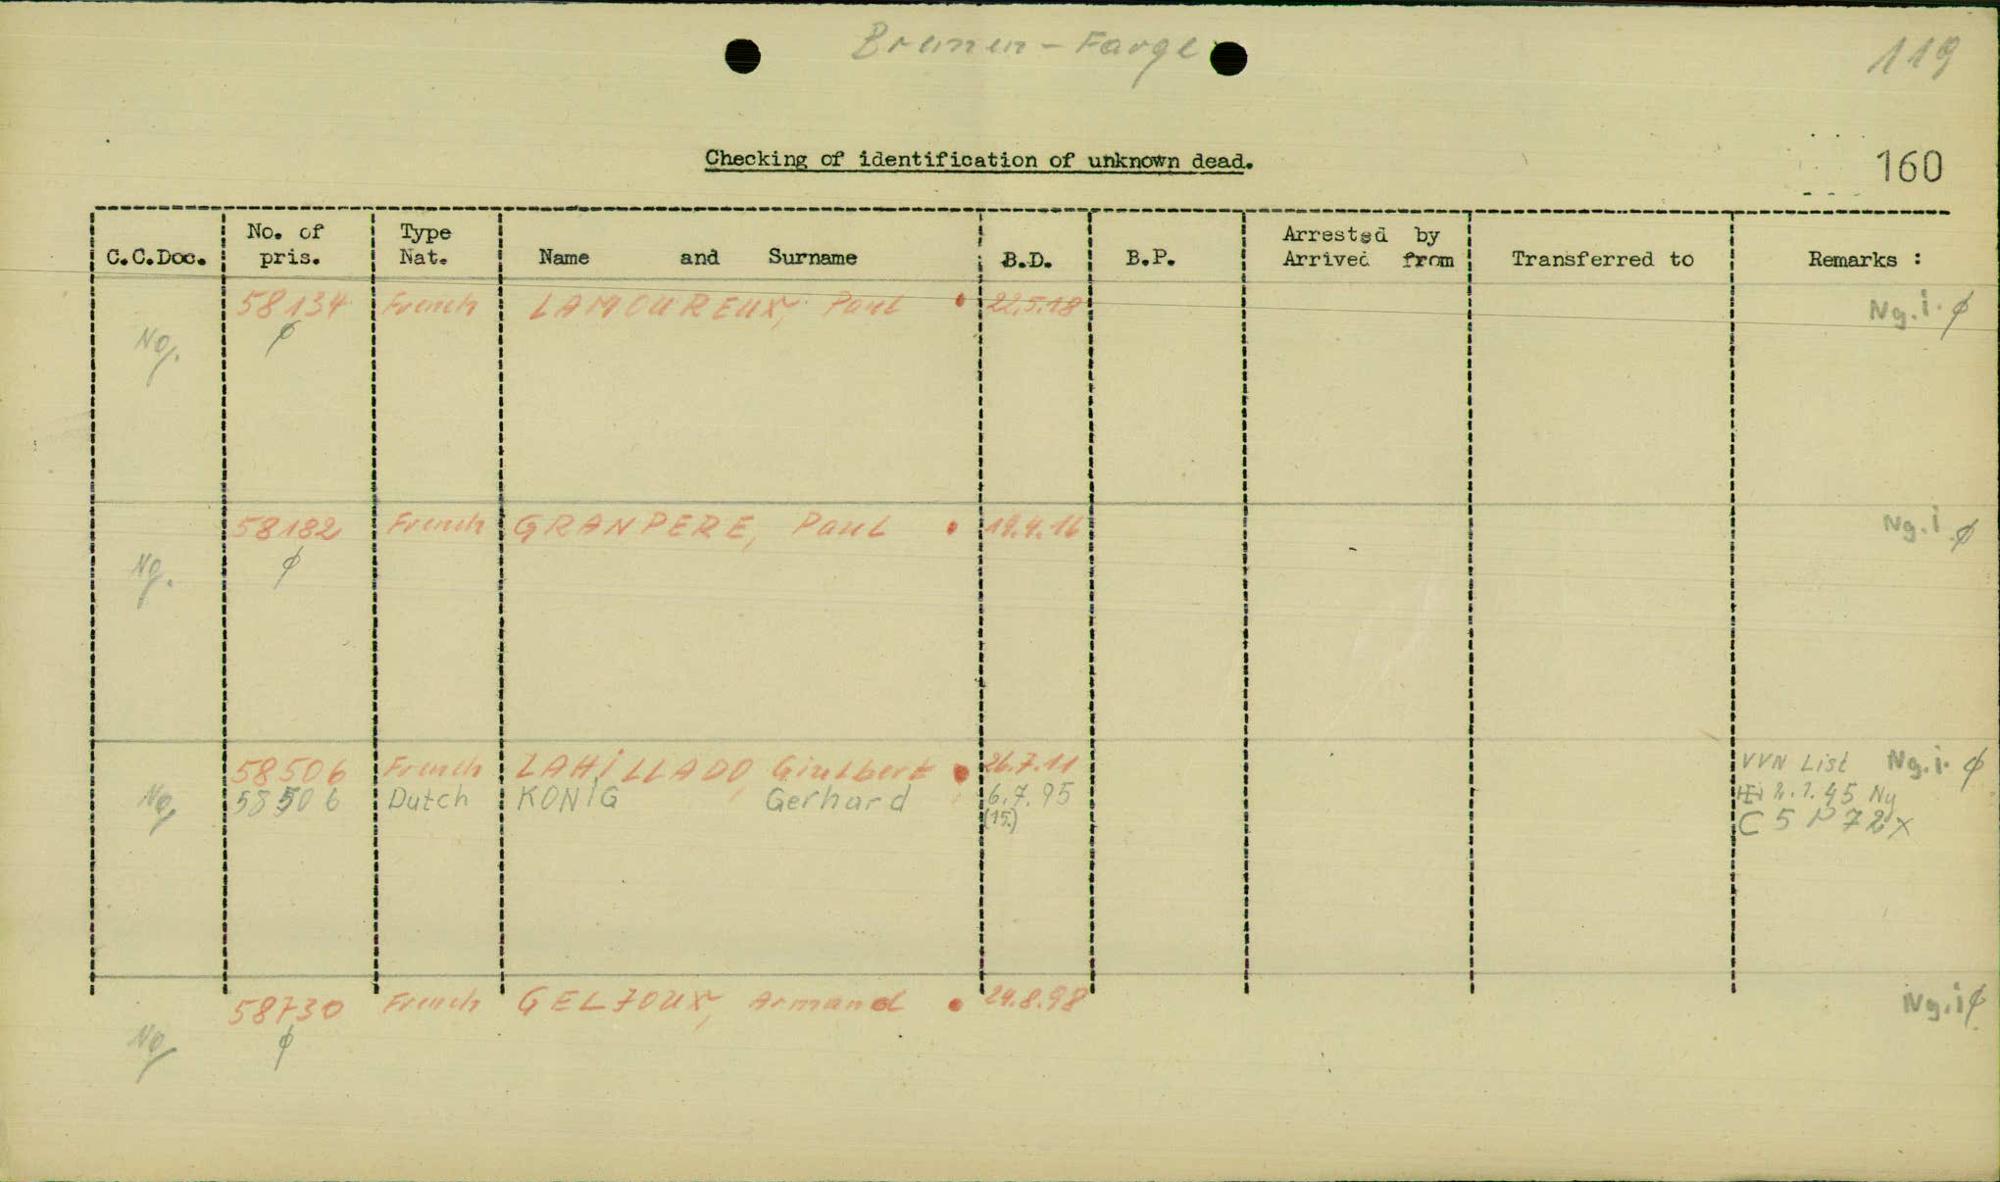 Bremen-Farge
119
Checking of identification of unknown dead.
160
C.C.Doc. No. of pris. Type Nat. Name and Surname B.D. B.P. Arrested by Arrived from Transferred to Remarks :
58134 French LAMOUREUX, Paul • 22.5.18 Ng.i. ∅
Ng. ∅
58182 French GRANPERE, Paul • 19.4.16 Ng.i ∅
Ng. ∅
58506 French LAHILLADO, • 26.7.11 VVN List Ng.i. ∅
Ng. 58506 Dutch KONIG Gerhard 6.7.95 2.1.45 Ng
(15.) C 5 P 72 x
58730 French GELZOUX, Armand • 24.8.98 Ng.i ∅
Ng. ∅